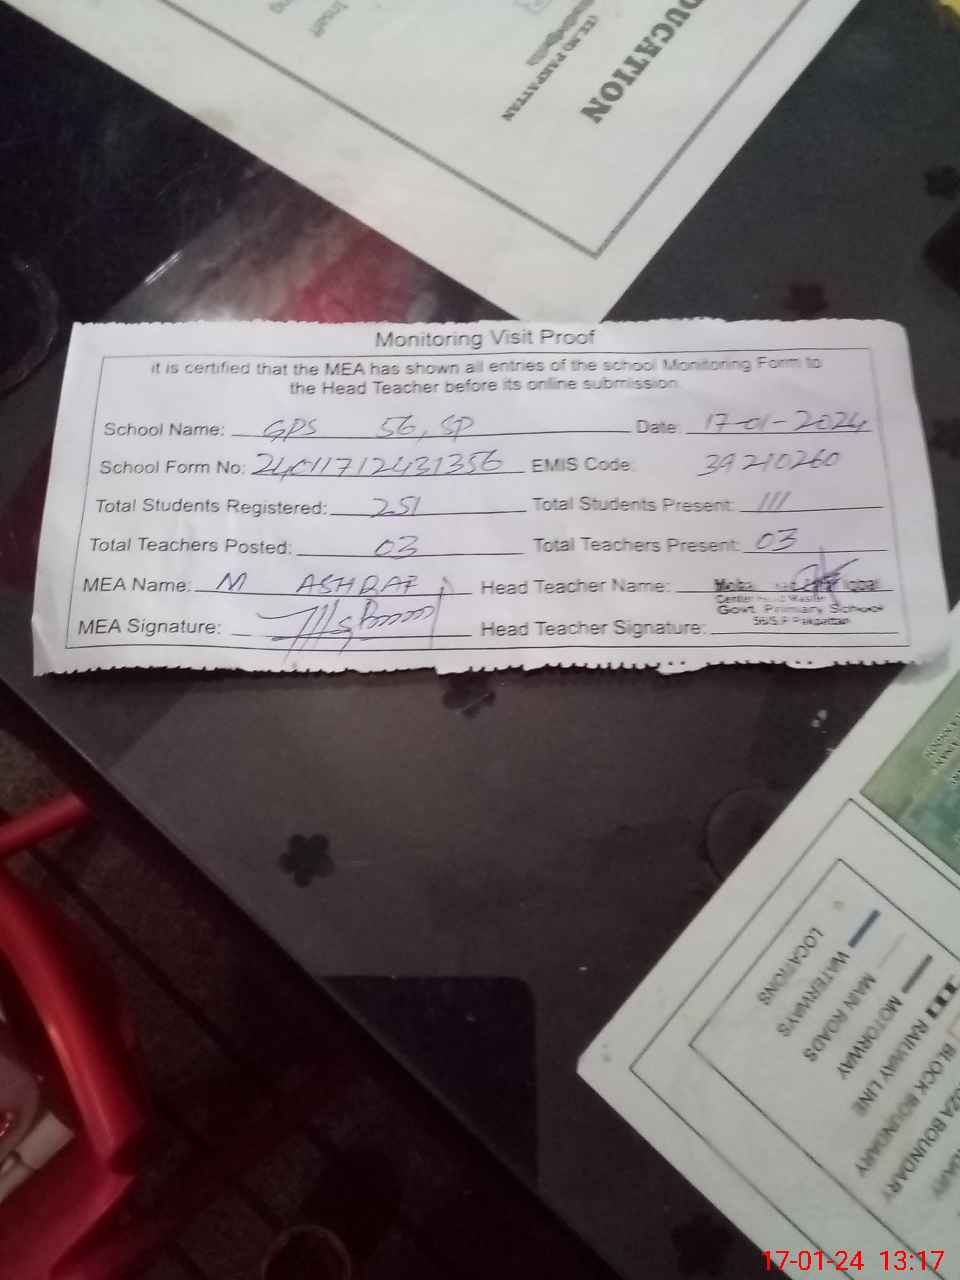 Inquiry
DUCATION
(EE.MD PAKPATTAN
Monitoring Visit Proof
it is certified that the MEA has shown all entries of the school Monitoring Form to
the Head Teacher before its online submission.
School Name: GPS 56, SP Date: 17-01-2024
School Form No: EMIS Code: 39210260
Total Students Registered: 251 Total Students Present: 111
Total Teachers Posted: 03 Total Teachers Present: 03
MEA Name: M ASHRAF Head Teacher Name: Iqbal
Center Head Master
Govt. Primary School
56/S.P Pakpattan
MEA Signature: Head Teacher Signature:
LOCATIONS
WATERWAYS
MAIN ROADS
MOTORWAY
RAILWAY LINE
BLOCK BOUNDARY
UZA BOUNDARY
17-01-24 13:17